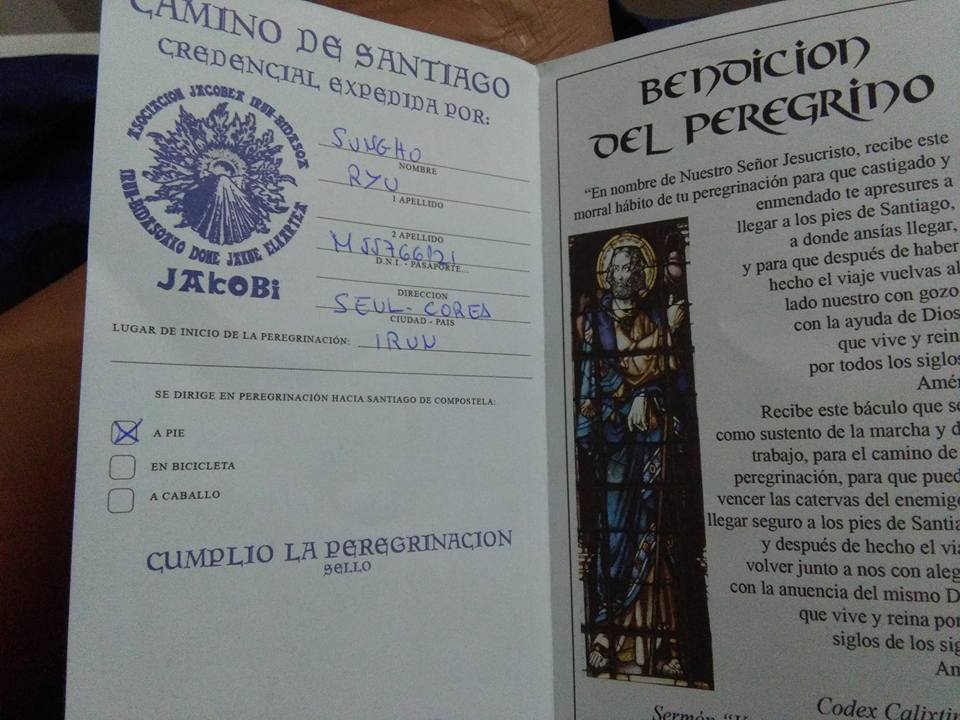 CAMINO DE SANTIAGO
CREDENCIAL EXPEDIDA POR:
ASOCIACION JACOBEA IRUN-BIDASOA
IRUN-BIDASOAKO DONE JAKUE ELKARTEA
JAKOBI
SUNGHO
NOMBRE
RYU
1 APELLIDO
2 APELLIDO
D.N.I. - PASAPORTE...
DIRECCION
SEUL - COREA
CIUDAD - PAIS
LUGAR DE INICIO DE LA PEREGRINACIÓN: IRUN
SE DIRIGE EN PEREGRINACIÓN HACIA SANTIAGO DE COMPOSTELA:
A PIE
EN BICICLETA
A CABALLO
CUMPLIO LA PEREGRINACION
SELLO
BENDICION
DEL PEREGRINO
“En nombre de Nuestro Señor Jesucristo, recibe este
morral hábito de tu peregrinación para que castigado y
enmendado te apresures a
llegar a los pies de Santiago,
a donde ansías llegar,
y para que después de haber
hecho el viaje vuelvas al
lado nuestro con gozo
con la ayuda de Dios
que vive y reina
por todos los siglos
Recibe este báculo que
como sustento de la marcha y
trabajo, para el camino de
peregrinación, para que
vencer las catervas del
llegar seguro a los pies de
y después de hecho el
volver junto a nos con
con la anuencia del mismo
que vive y reina por
siglos de los
Codex
Sermón